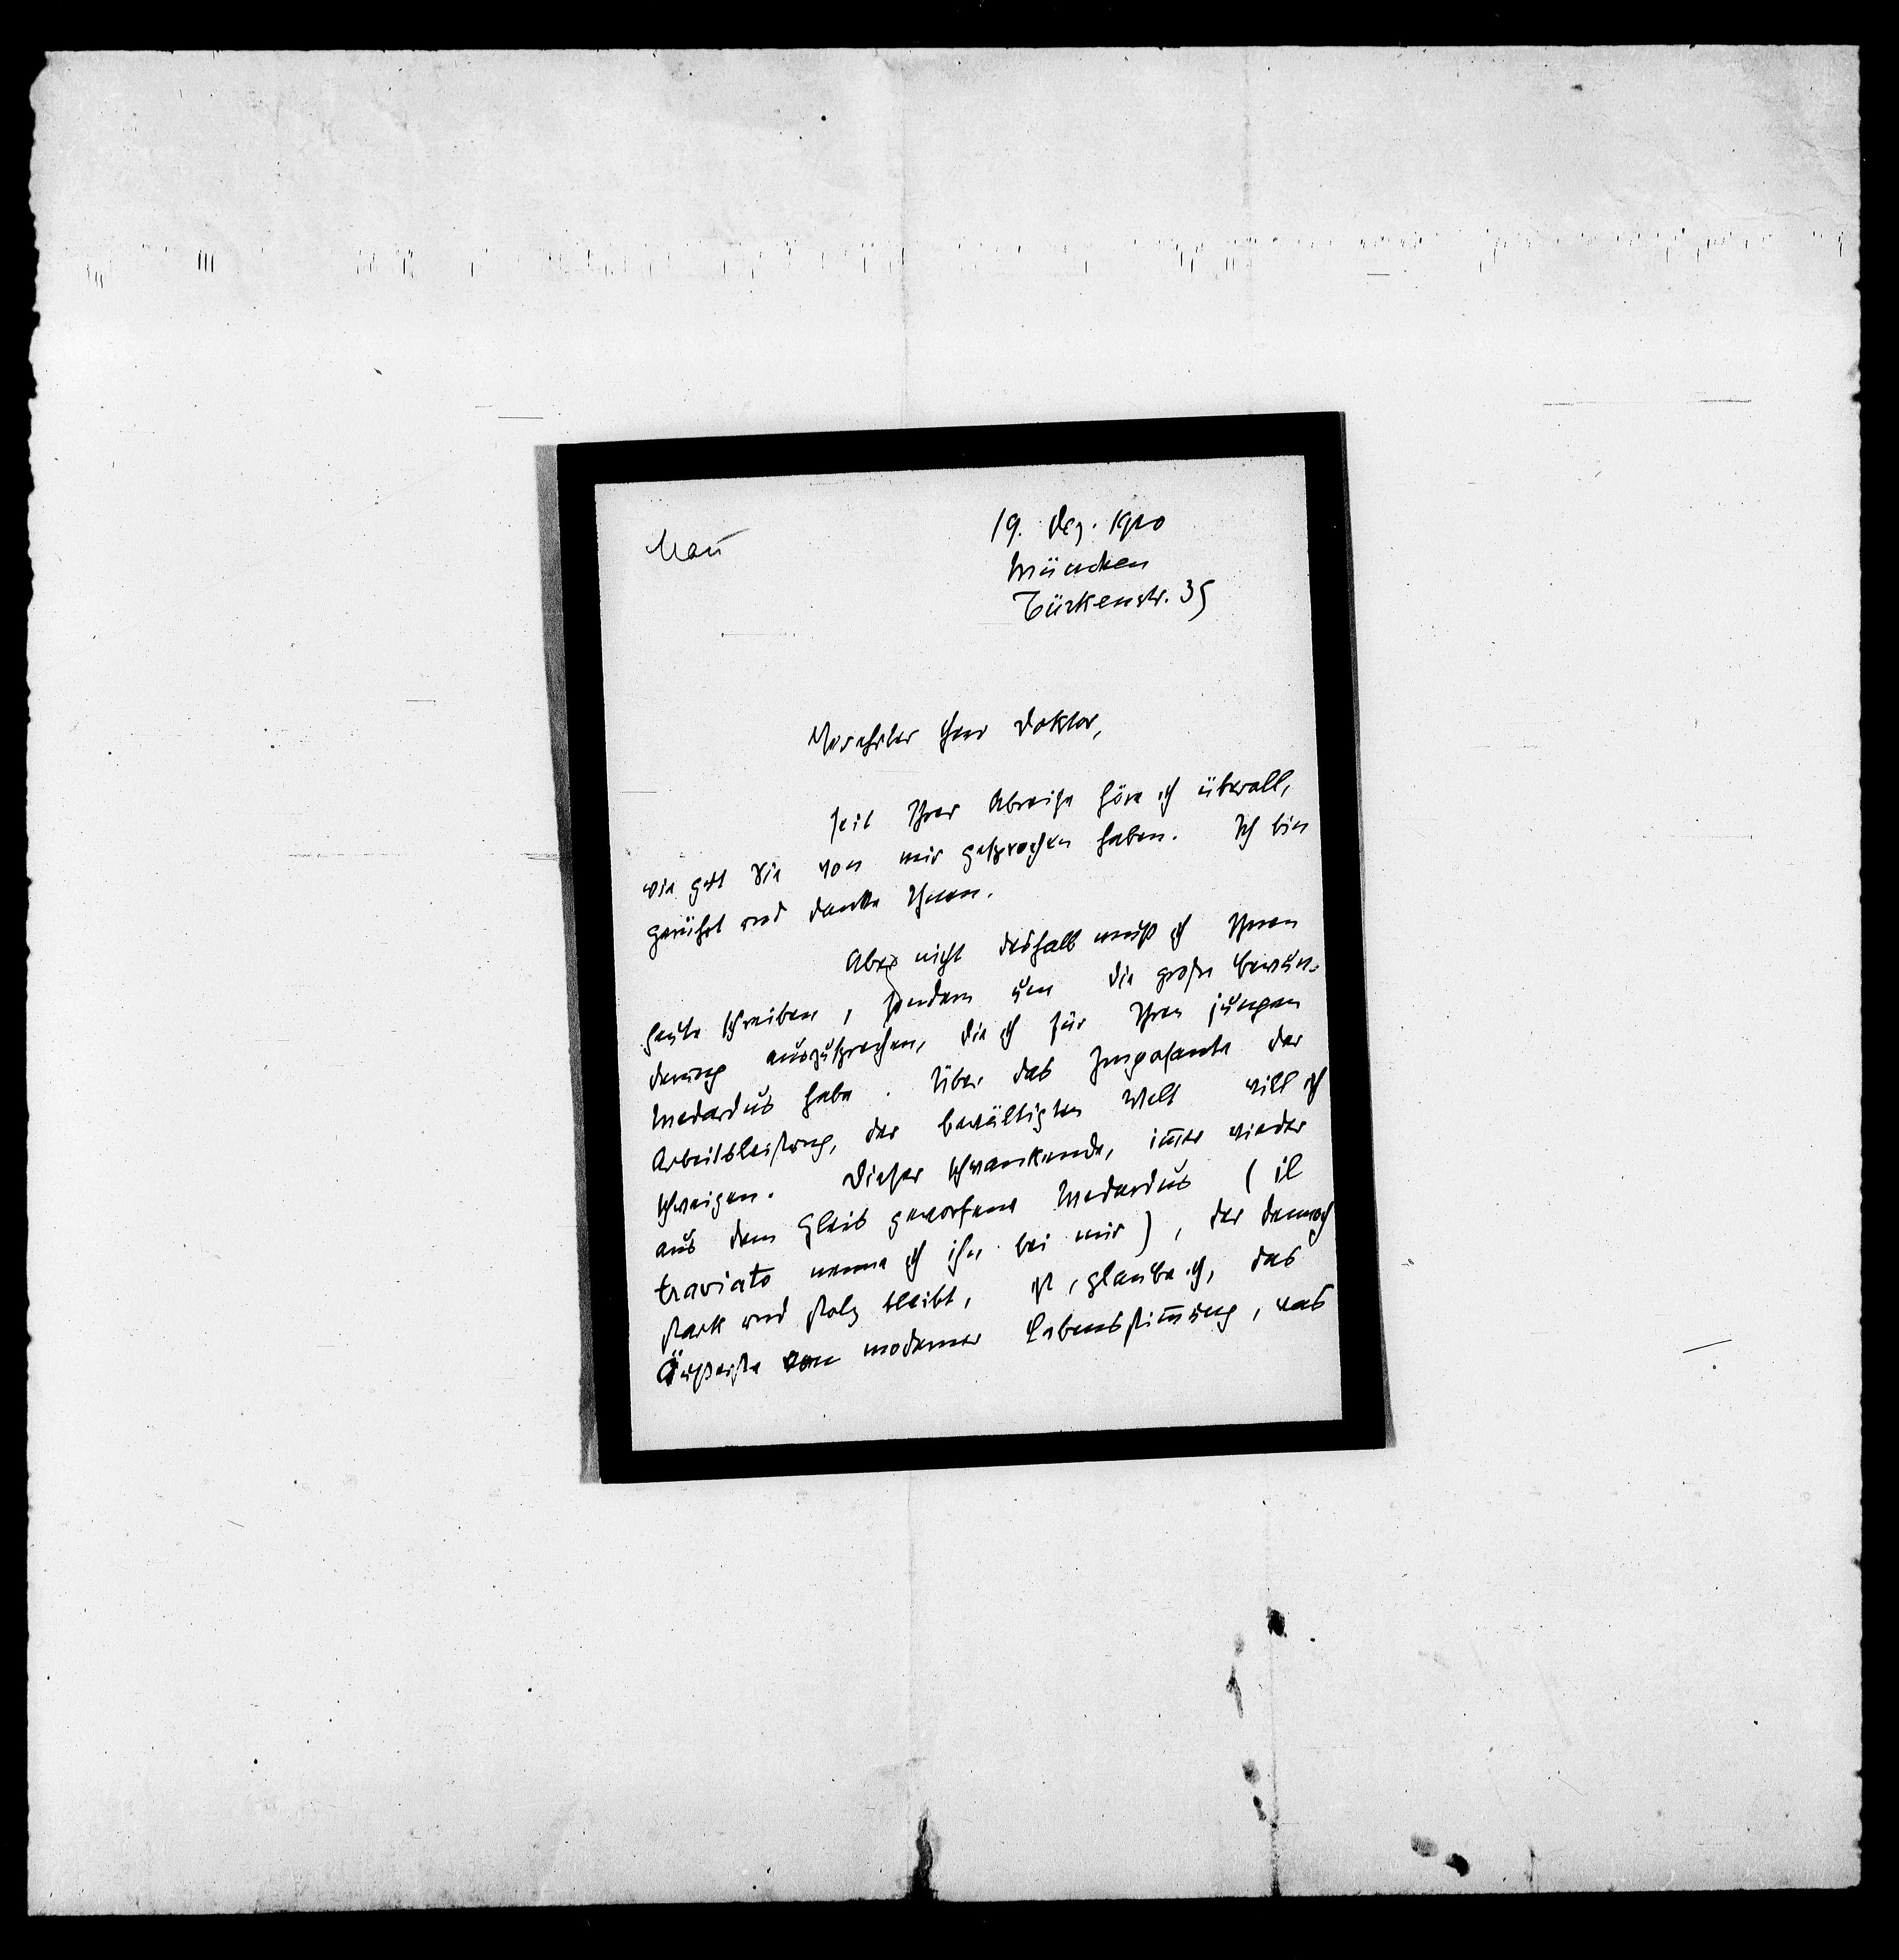 Mañ
19. Dez. 1910
München
Türkenstr. 35
Verehrter Herr Doktor,
seit Ihrer Abreise höre ich überall,
wie gut Sie von mir gesprochen haben. Ich bin
gerührt und danke Ihnen.
Aber nicht deshalb muß ich Ihnen
heute schreiben, sondern um die große Bewun-
derung auszusprechen, die ich für Ihren jungen
Medardus habe. Über das Imposante der
Arbeitsleistung, der bewältigten Welt will ich
schweigen. Dieser schwankende, im̅er wieder
aus dem Gleis geworfene Medardus (il
traviato nenne ich ihn bei mir), der dennoch
stark und stolz bleibt, ist, glaube ich, das
Äußerste von moderner Lebensstim̅ung, was